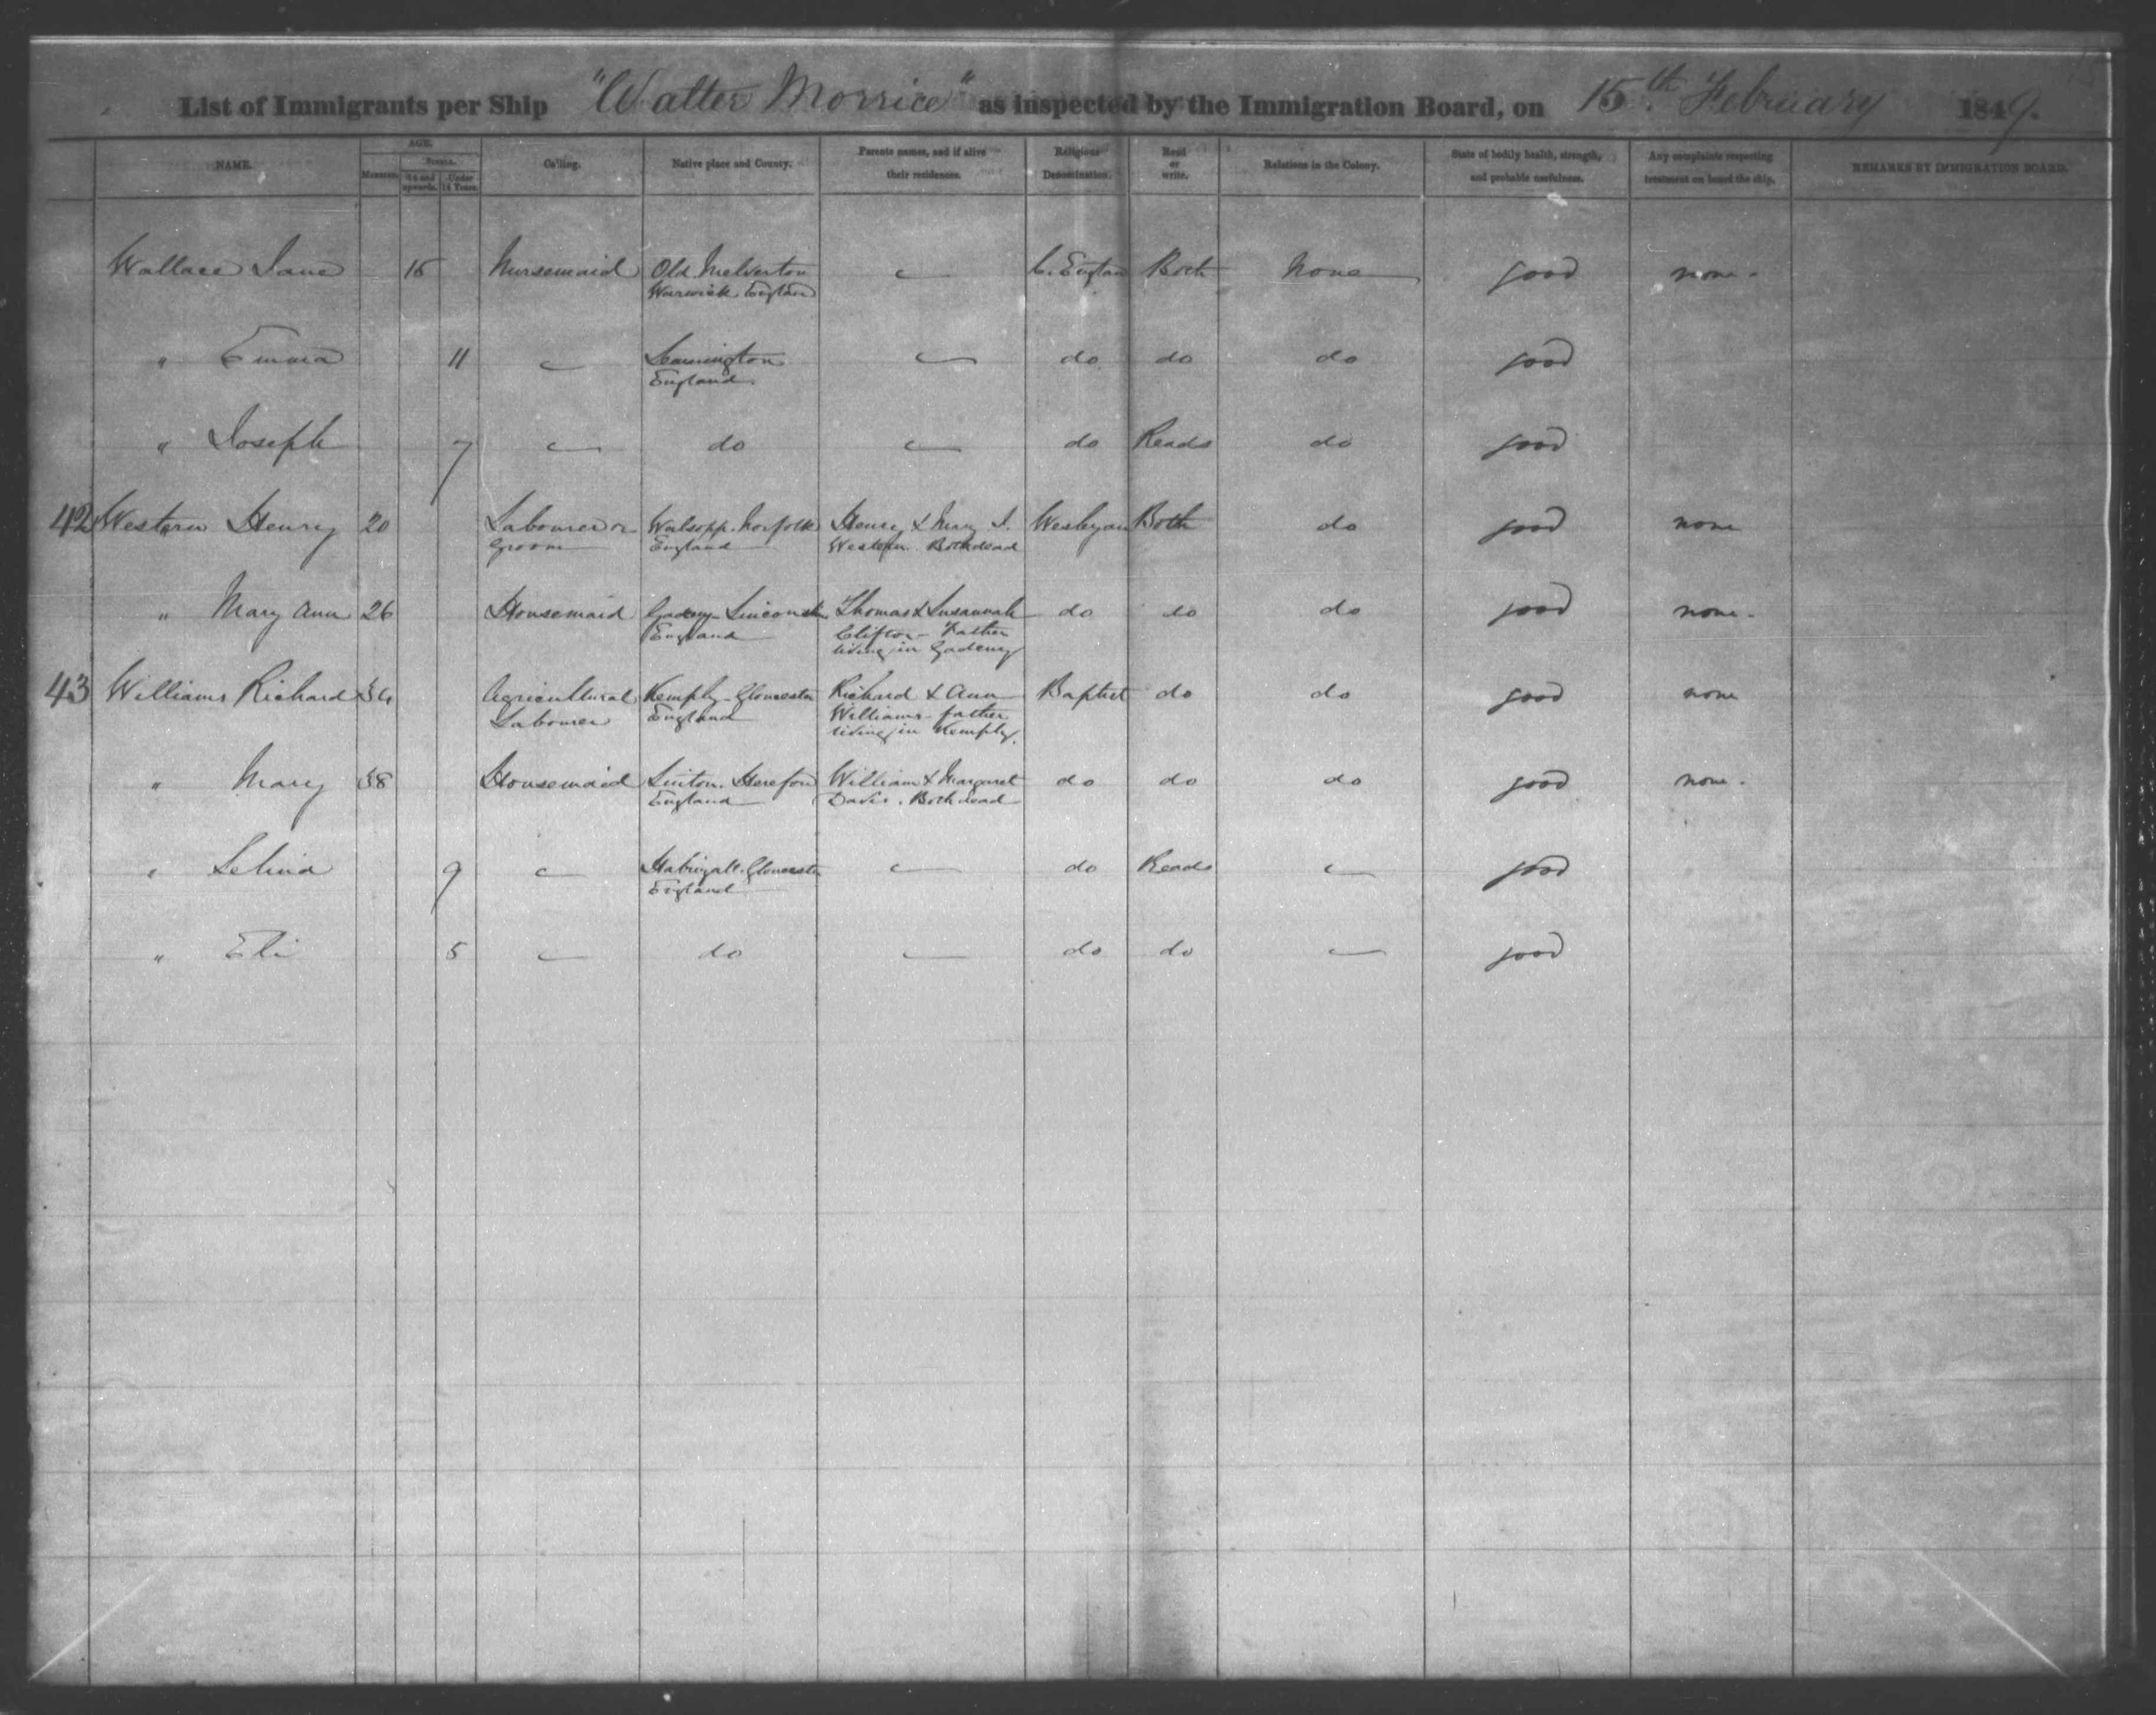 List of Immigrants per Ship "Walter Morrice" as inspected by the Immigration Board, on 15th February 1849.
NAME. AGE. Married. Single. 14 and upwards. Under 14 Years. Calling. Native place and County. Parents names, and if alive their residences. Religious Denomination. Read or write. Relations in the Colony. State of bodily health, strength, and probable usefulness. Any complaints respecting treatment on board the ship. REMARKS BY IMMIGRATION BOARD.
Wallace Jane 15 Nursemaid Old Melverton C. Englan Both None good none -
Warwick Englan
" Emma 11 Leamington do do do good
England
" Joseph 7 do do Reads do good
42 Western Henry 20 Labourer or Walsopp. Norfolk Henry & Mary I. Wesleyan Both do good none
Groom England Western. Both dead
" Mary Ann 26 Housemaid Gadeny Thomas & Susannah do do do good none -
England Clifton - Father
living in Gadeny
43 Williams Richard 34 Agricultural Kemply - Gloucester Richard & Ann Baptist do do good none
Labourer England Williams - father
living in Kemply.
" Mary 38 Housemaid Linton. Hereford William & Margaret do do do good none -
England Davis. Both dead
" Selina 9 Gloucester do Reads good
England
" Eli 5 do do do good